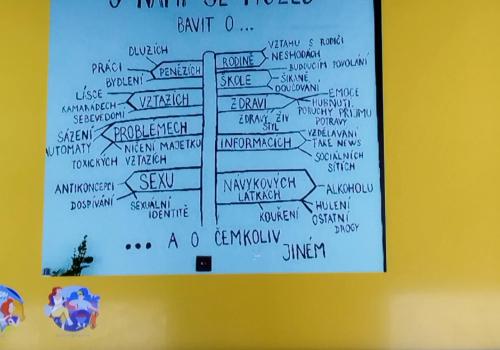 S NÁMI SE MŮŽEŠ
BAVIT O ...
DLUZÍCH
PRÁCI
BYDLENÍ
PENĚZÍCH
VZTAHU S RODIČI
NESHODÁCH
RODINĚ
BUDOUCÍM POVOLÁNÍ
ŠIKANĚ
DOUČOVÁNÍ
ŠKOLE
LÁSCE
KAMARÁDECH
SEBEVĚDOMÍ
VZTAZÍCH
EMOCE
HUBNUTÍ
PORUCHY PŘÍJMU
POTRAVY
ZDRAVÝ ŽIV.
STYL
ZDRAVÍ
SÁZENÍ
AUTOMATY
NIČENÍ MAJETKU
TOXICKÝCH VZTAZÍCH
PROBLÉMECH
VZDĚLÁVÁNÍ
FAKE NEWS
SOCIÁLNÍCH
SÍTÍCH
INFORMACÍCH
ANTIKONCEPCI
DOSPÍVÁNÍ
SEXUÁLNÍ
IDENTITĚ
SEXU
NÁVYKOVÝCH
LÁTKÁCH
ALKOHOLU
HULENÍ
OSTATNÍ
DROGY
KOUŘENÍ
... A O ČEMKOLIV
JINÉM